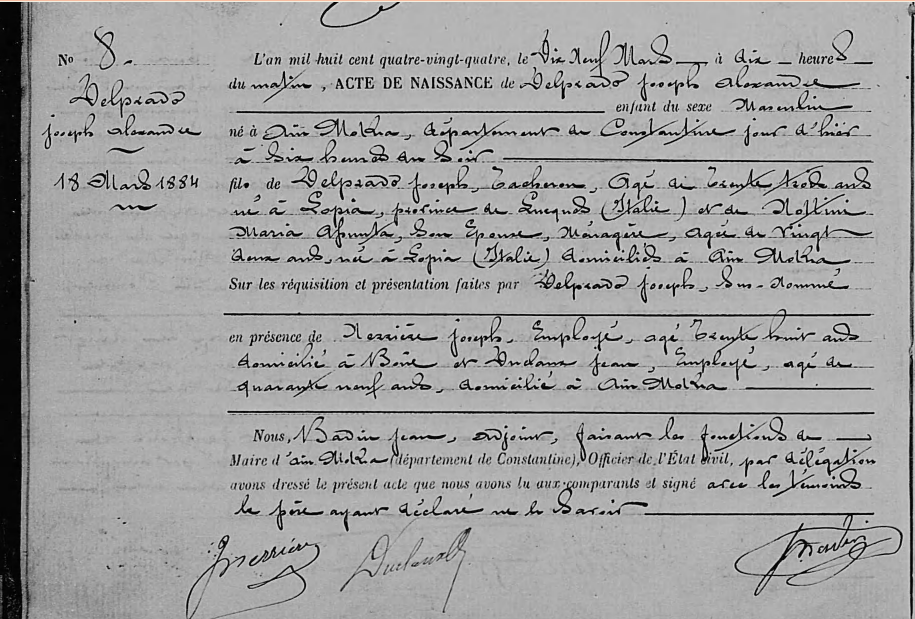 No 8.
Delprado
Joseph Alexandre
18 Mars 1884
L'an mil huit cent quatre-vingt-quatre, le Dix Neuf Mars à dix heures
du matin, ACTE DE NAISSANCE de Delprado Joseph Alexandre
enfant du sexe Masculin
né à Ain Mokra, département de Constantine jour d'hier
à Six heures du Soir
fils de Delprado Joseph, Tacheron, Agé de trente trois ans
né à Lopia, province de Lucques (Italie) et de Nottini
Maria Assunta, Son Epouse, Ménagère, agée de Vingt
deux ans, née à Lopia (Italie) domiciliés à Ain Mokra
Sur les réquisition et présentation faites par Delprado Joseph, Sus-Nommé
en présence de Merrière Joseph, Employé, agé trente huit ans
domicilié à Bône et Duclaux Jean, Employé, agé de
quarante neuf ans, domicilié à Ain Mokra
Nous, Badin Jean, adjoint, faisant les fonctions de
Maire d'Ain Mokra (département de Constantine), Officier de l'État civil, par délégation
avons dressé le présent acte que nous avons lu aux comparants et signé avec les témoins
le père ayant déclaré ne le Savoir
Duclaux